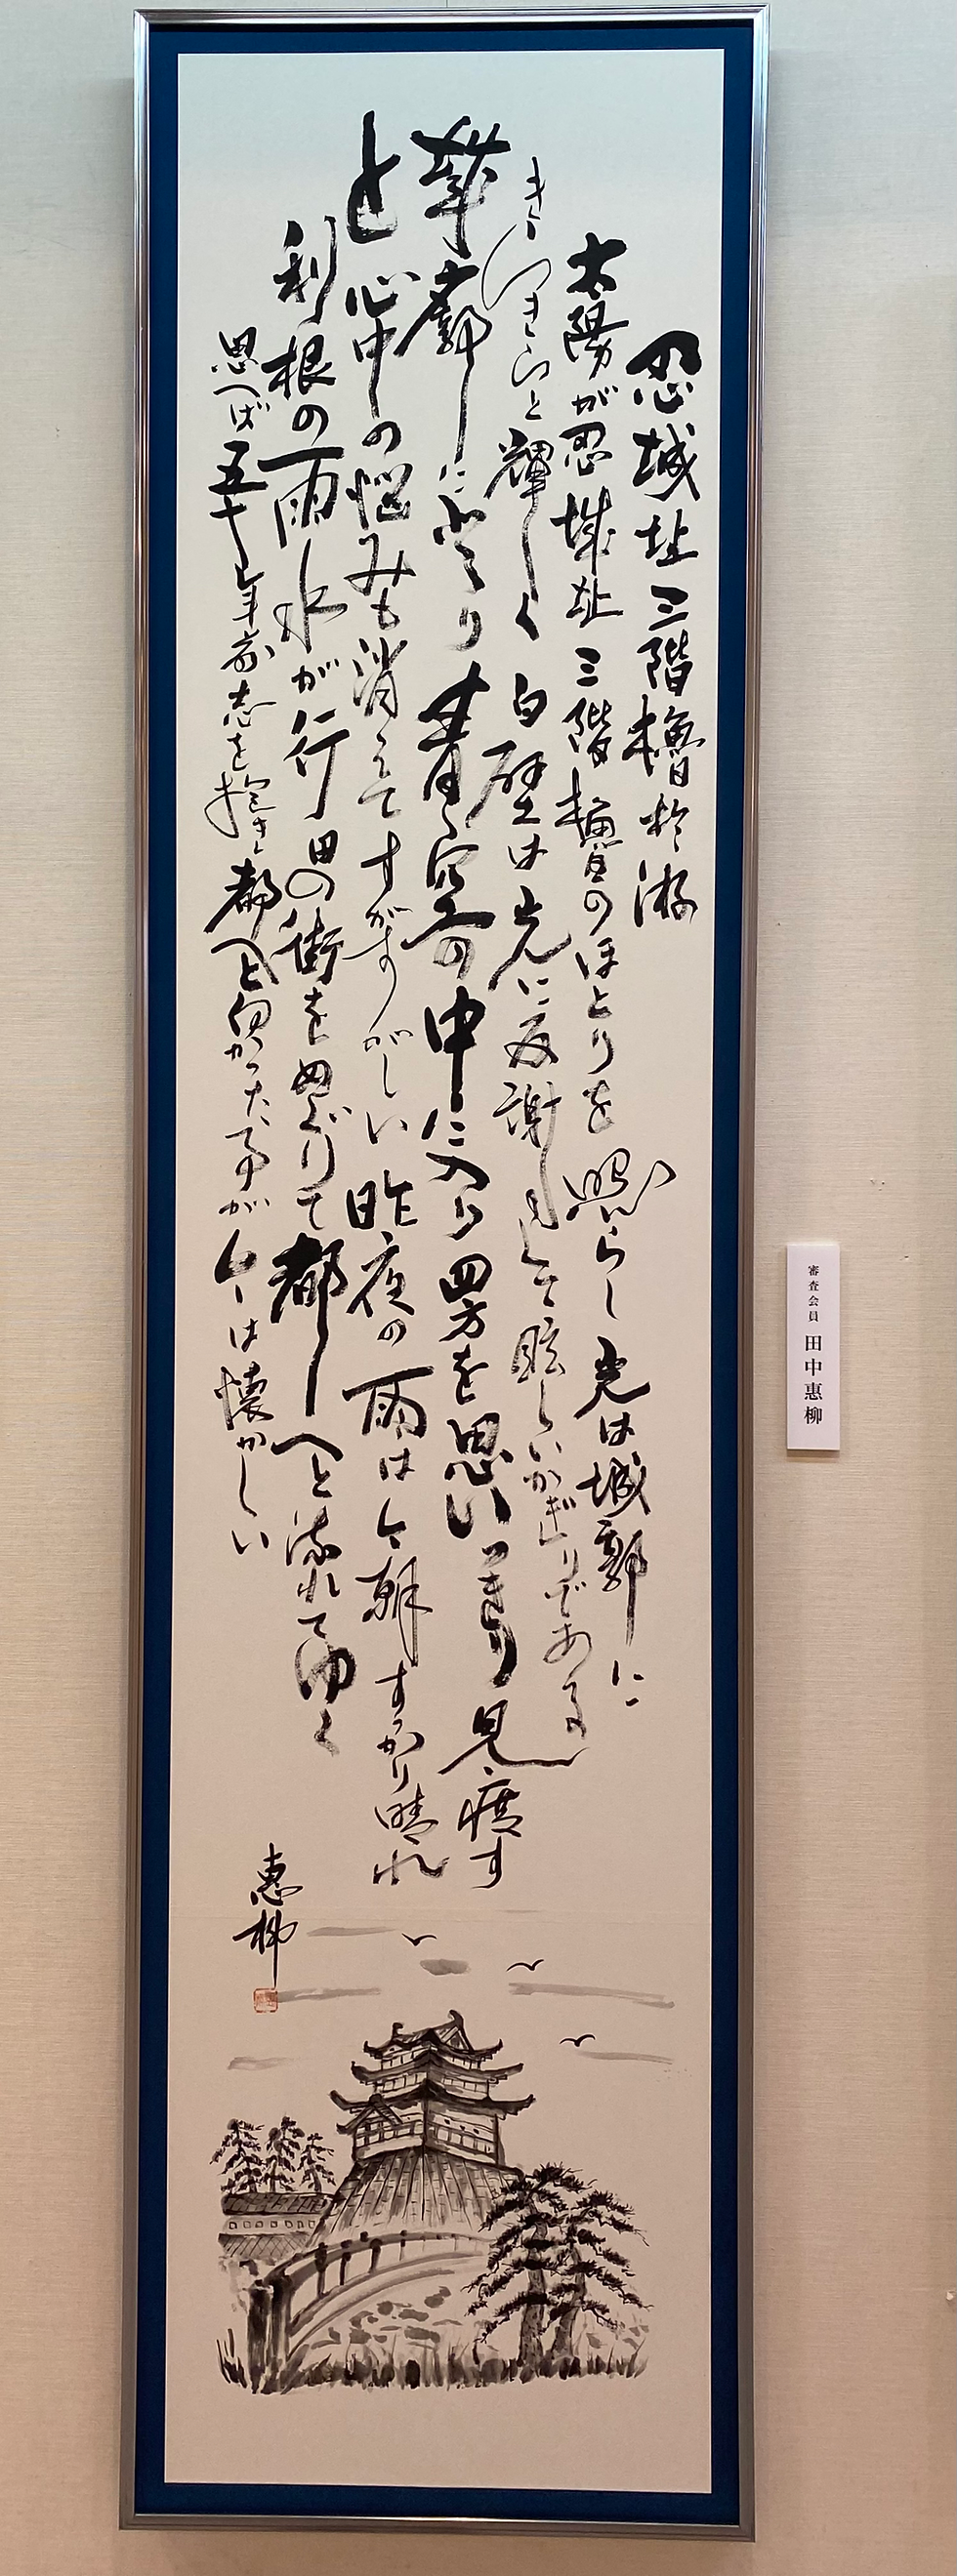 忍城址三階櫓於游
太陽が忍城址三階櫓のほとりを照らし光は城郭に
きらきらと輝く白壁は光に反謝して眩しいかぎりである
華廓に登り青空の中に入り四方を思いきり見渡す
と心中の悩みも消えてすがすがしい昨夜の雨は今朝すっかり晴れ
利根の雨水が行田の街をめぐりて都へと流れてゆく
思へば五十年前志を抱き都へと向かった事が今は懐かしい
惠柳
審査会員 田中惠柳